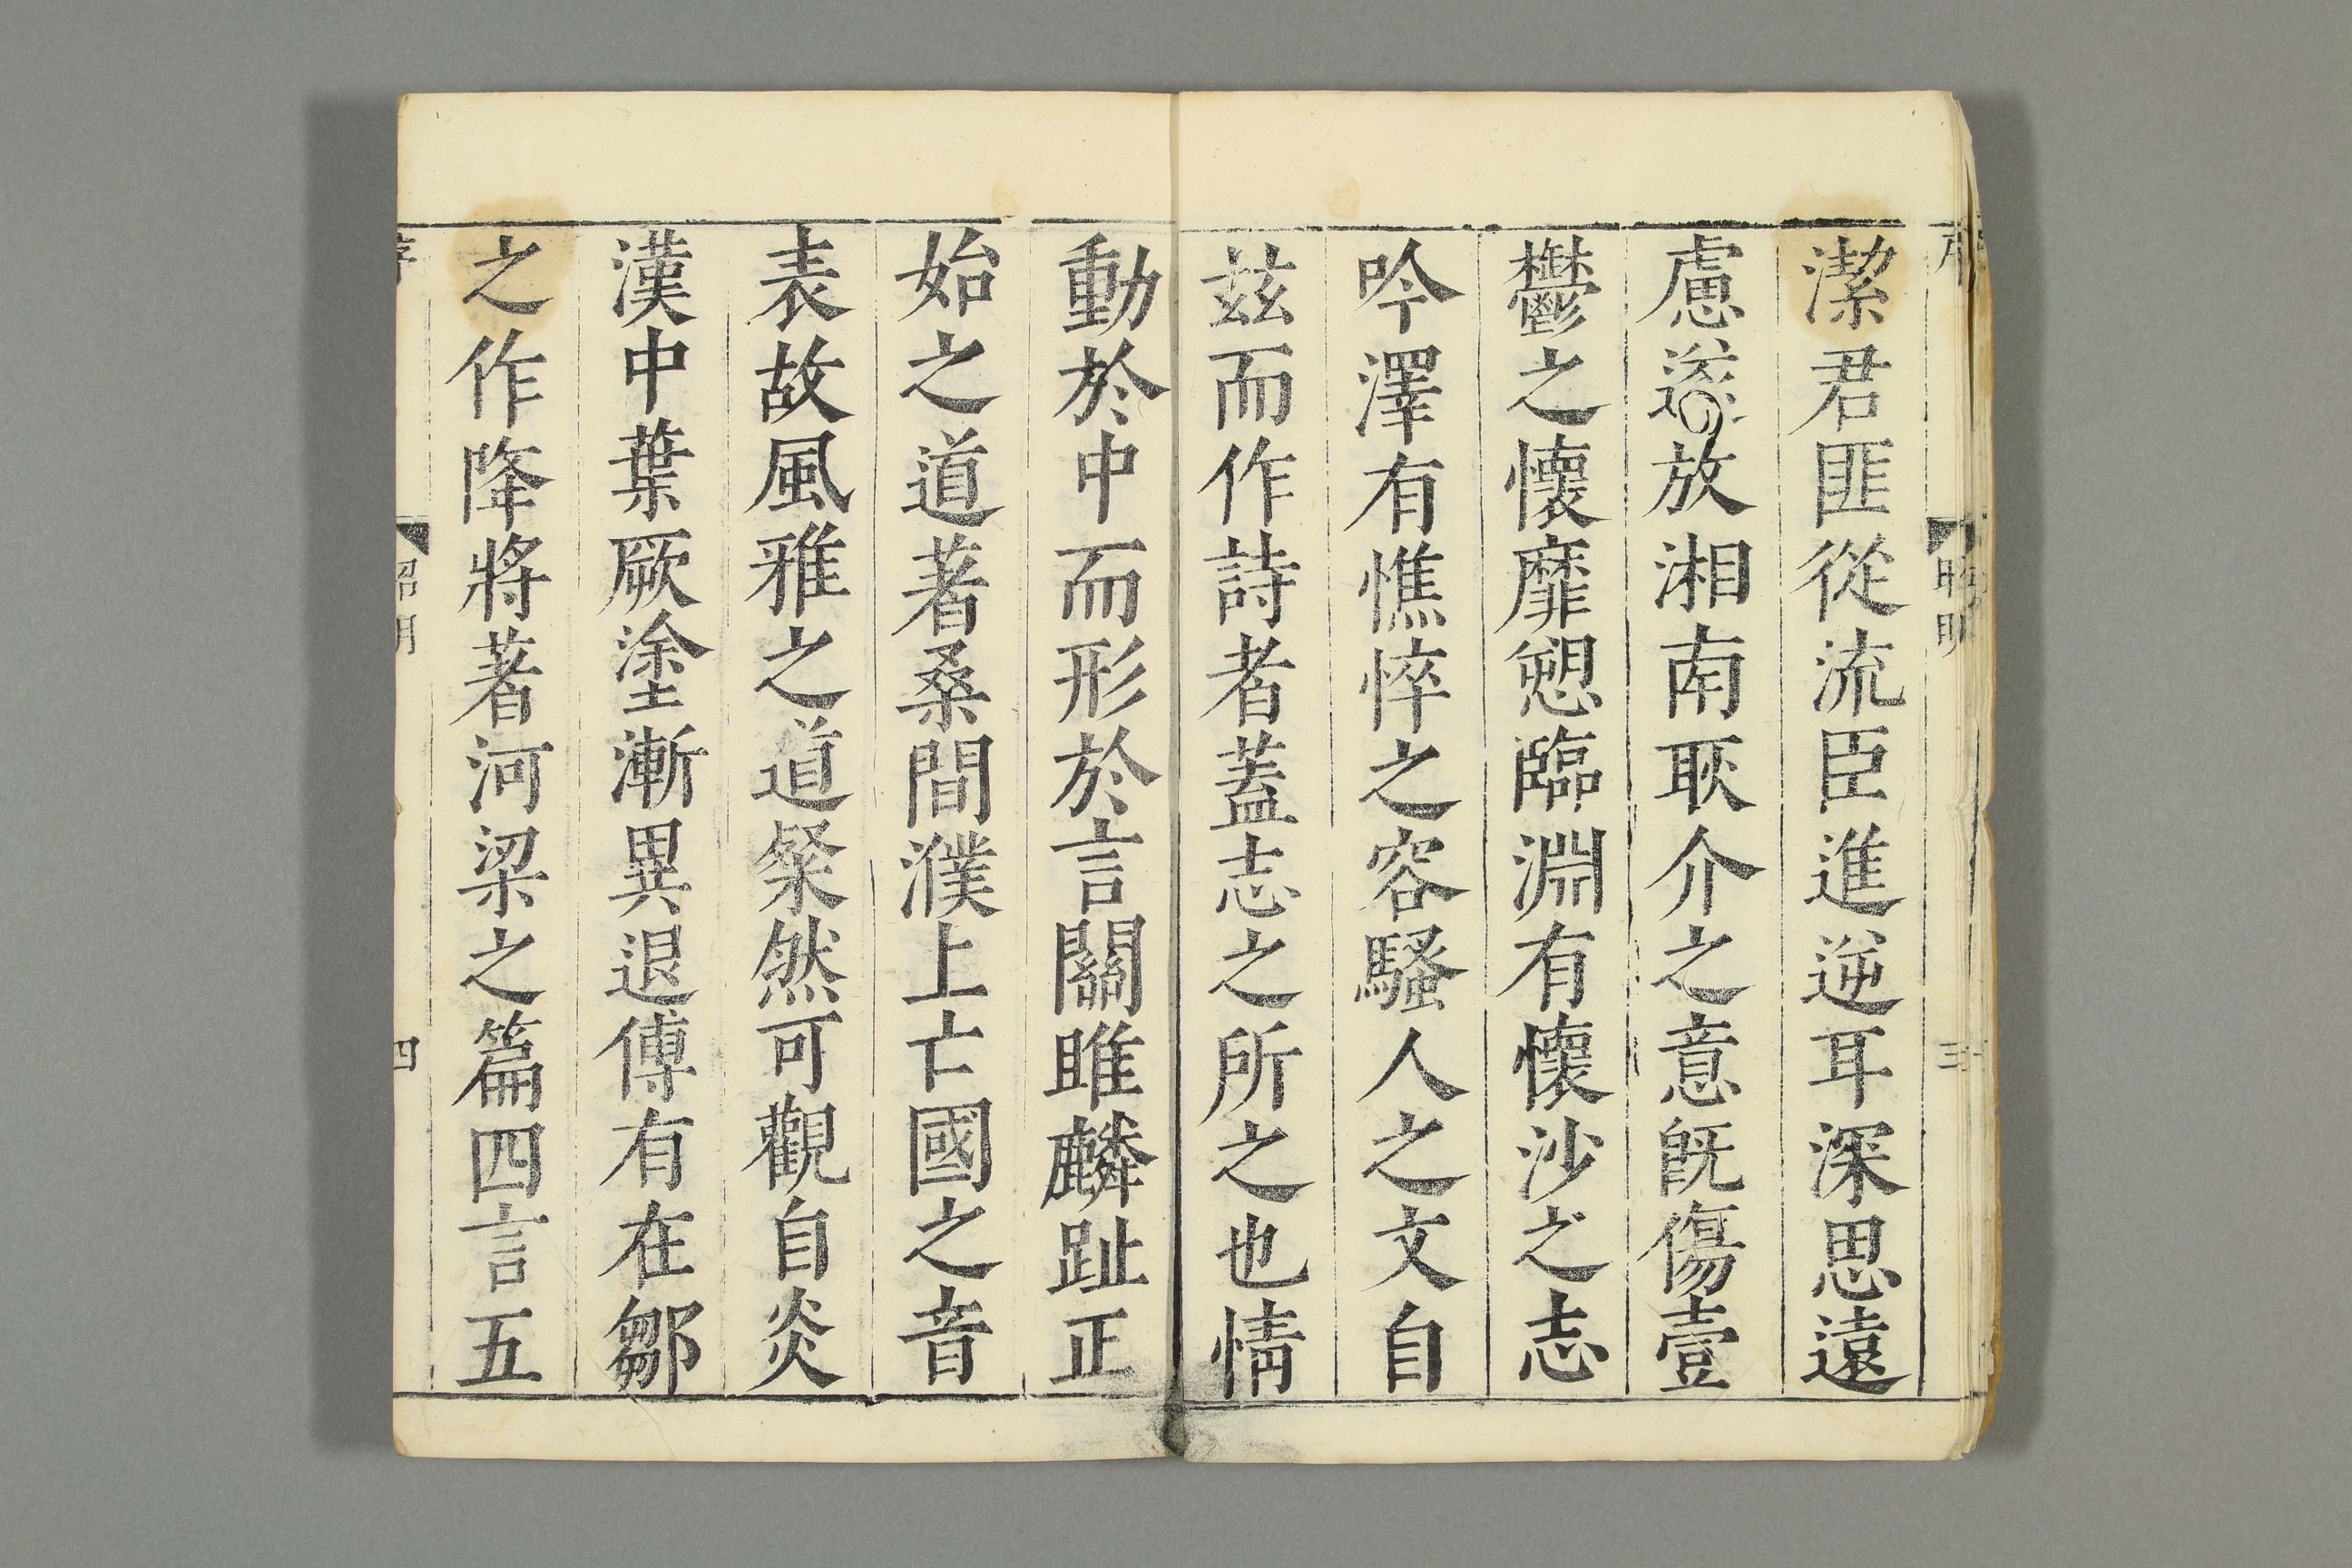 昭明
三
潔君匪從流臣進逆耳深思遠
慮遂放湘南耿介之意旣傷壹
鬱之懷靡愬臨淵有懷沙之志
吟澤有憔悴之容騷人之文自
茲而作詩者蓋志之所之也情
動於中而形於言關雎麟趾正
始之道著桑間濮上亡國之音
表故風雅之道粲然可觀自炎
漢中葉厥塗漸異退傅有在鄒
之作降將著河梁之篇四言五
序
昭明
四